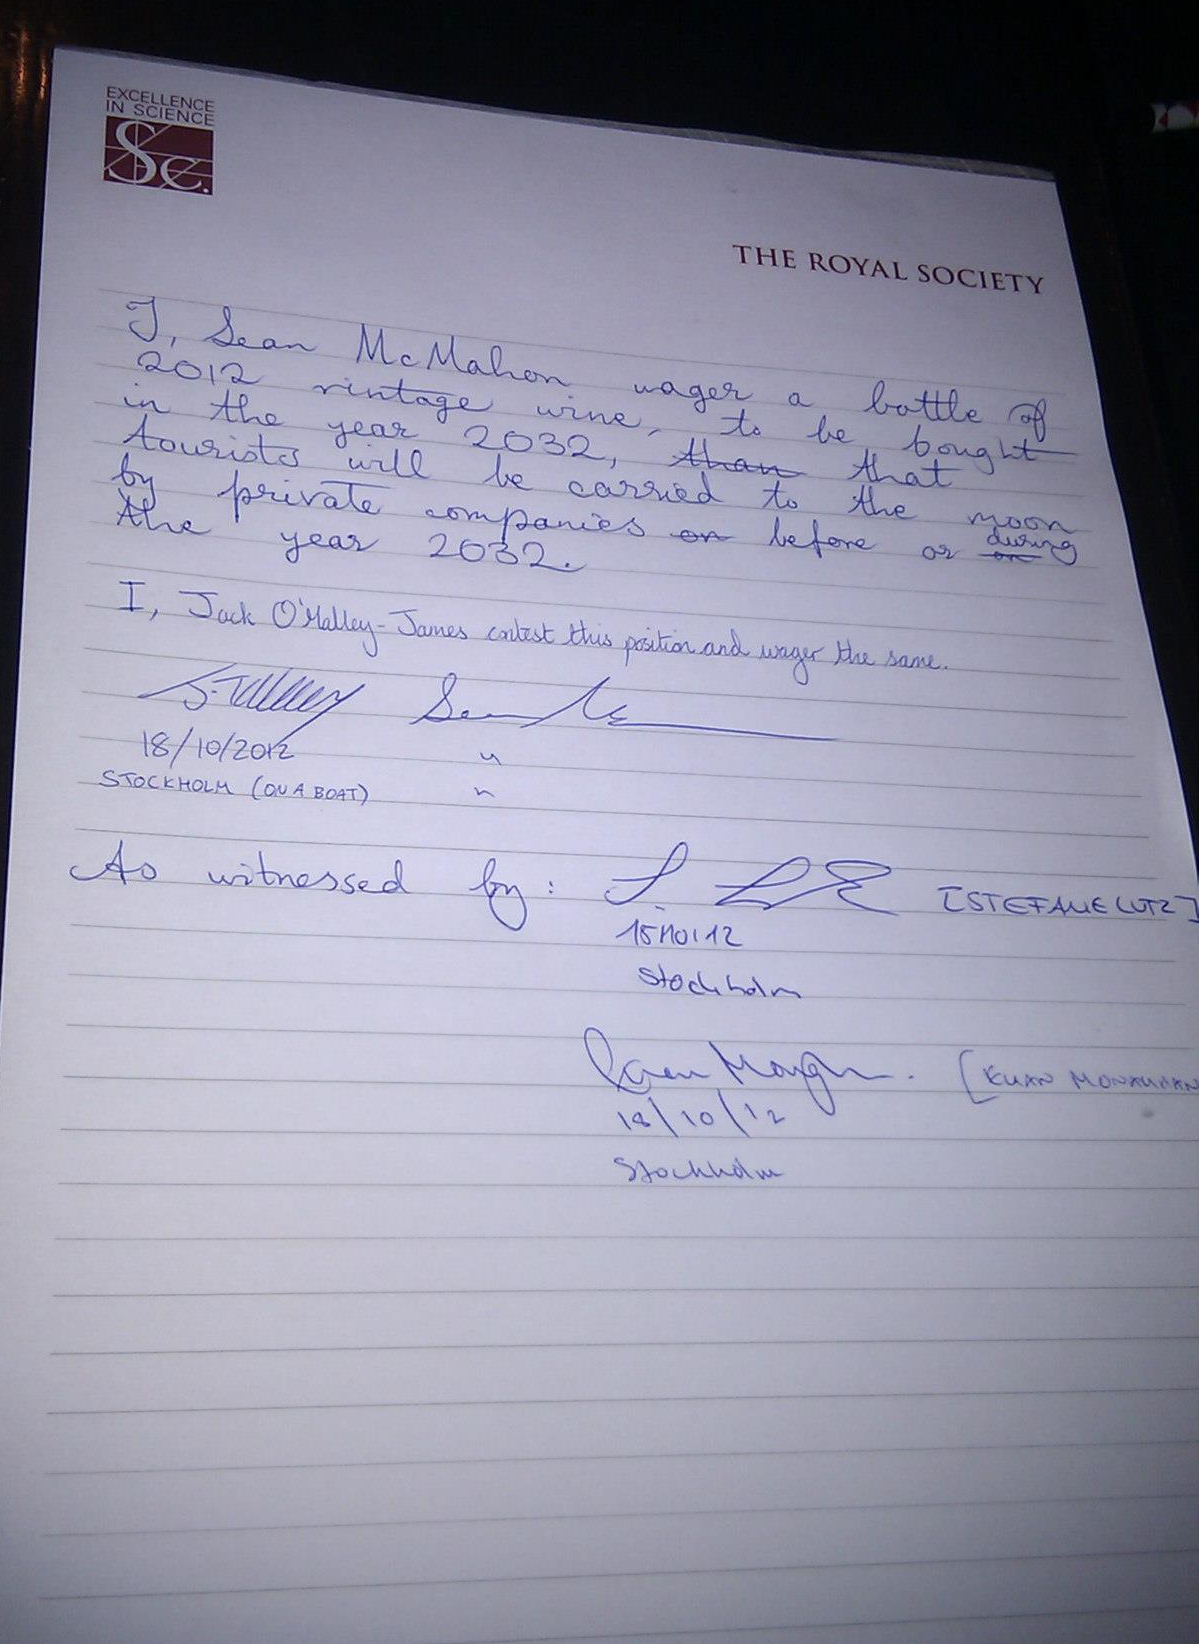 EXCELLENCE
IN SCIENCE
Sc.
THE ROYAL SOCIETY
I, Sean McMahon wager a bottle of
2012 vintage wine, to be bought
in the year 2032, than that
tourists will be carried to the moon
by private companies on before or on during
the year 2032.
I, Jack O'Malley-James contest this position and wager the same.
18/10/2012 "
STOCKHOLM (ON A BOAT) "
As witnessed by: [STEFANIE LUTZ]
Stockholm
[EUAN MONAGHAN
18/10/12
Stockholm